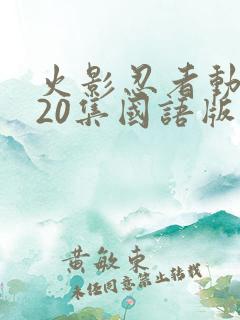 火影忍者動
20集國語版
黃敏東
未經同意禁止轉載